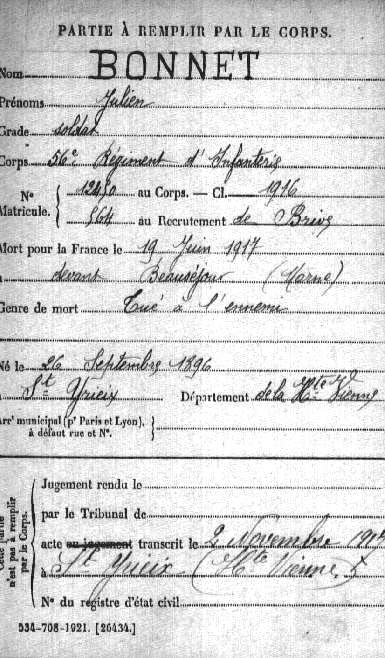 PARTIE À REMPLIR PAR LE CORPS.
Nom BONNET
Prénoms Julien
Grade soldat
Corps 56e Régiment d'Infanterie
N° Matricule. { 12480 au Corps. — Cl. 1916
864 au Recrutement de Brive
Mort pour la France le 19 Juin 1917
à devant Beauséjour (Marne)
Genre de mort Tué à l'ennemi
Né le 26 Septembre 1896
à St Yrieix Département de la Hte Vienne
Arrt municipal (pr Paris et Lyon), à défaut rue et N°. }
Cette partie n'est pas à remplir par le Corps.
Jugement rendu le
par le Tribunal de
acte ou jugement transcrit le 2 Novembre 1917
à St Yrieix (Hte Vienne)
N° du registre d'état civil
534-708-1921. [26434.]